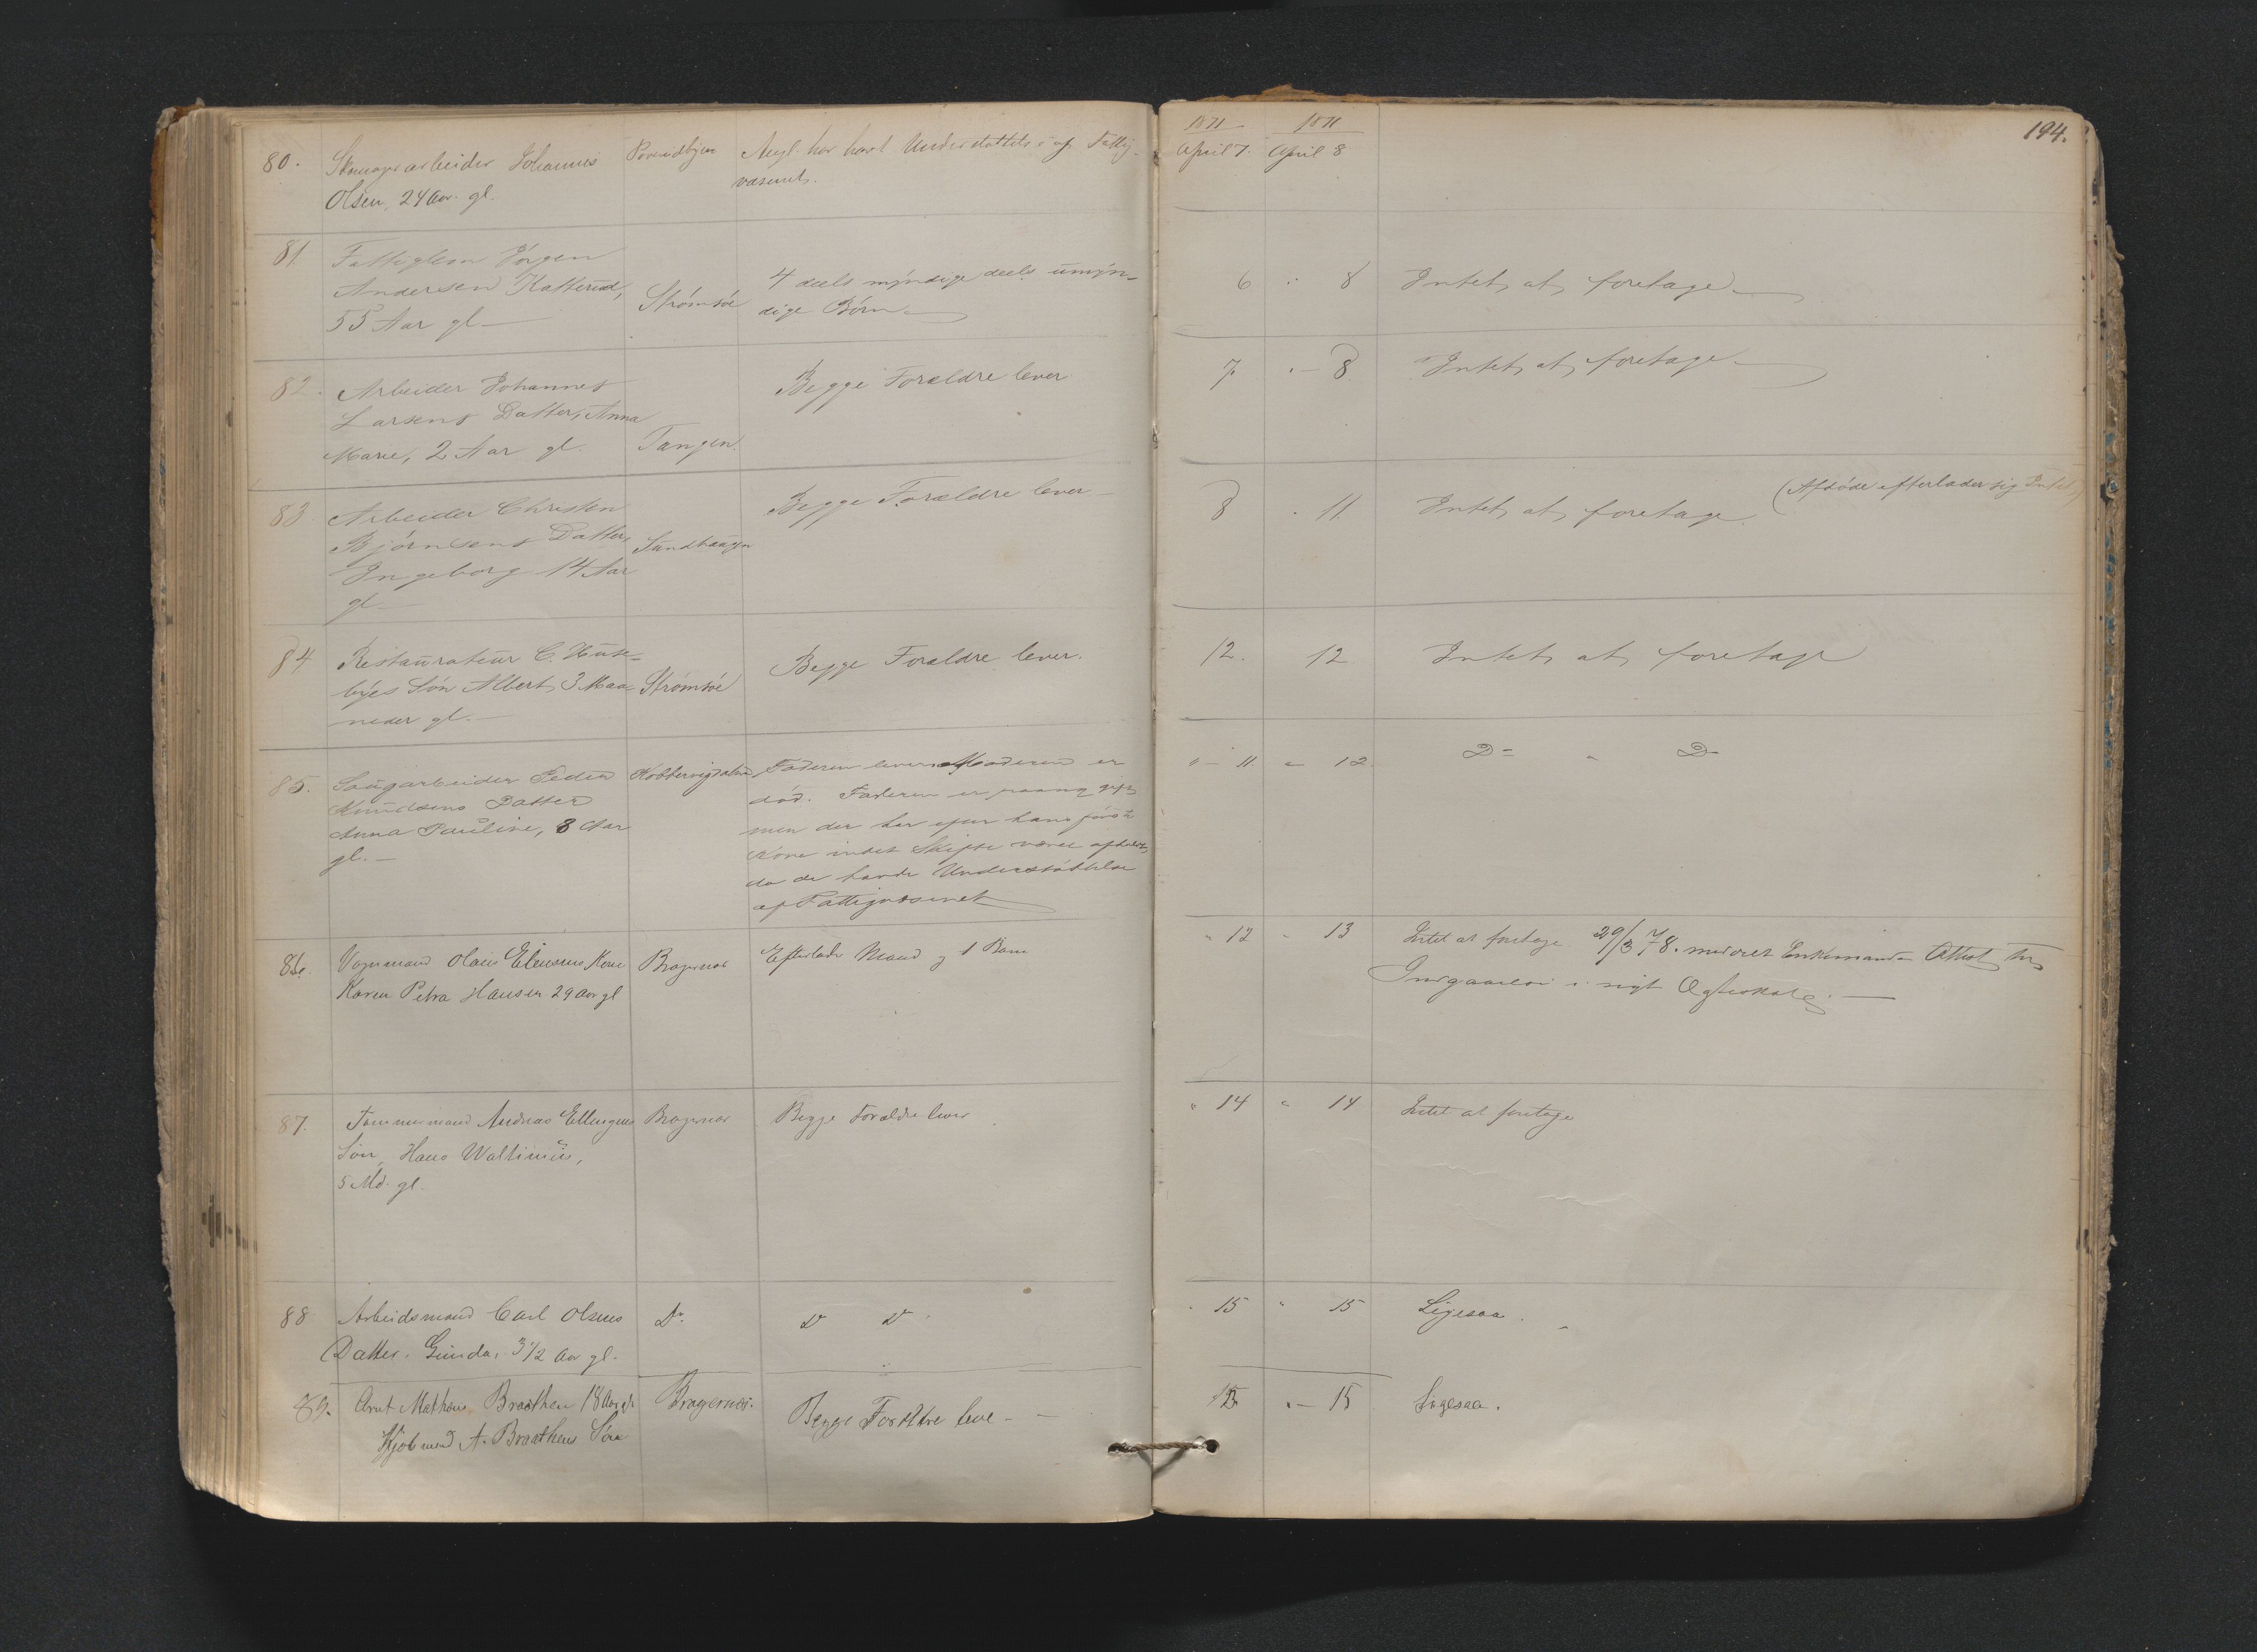 194.
1871 1871
April 7. April 8
80.
Skomagerarbeider Johannes
Olsen, 24 Aar gl.
Angl. har havt Understøttelse af Fattig-
væsenet.
81.
Fattiglem Jörgen
Andersen Katterud,
55 Aar gl.
Strömsöe
4 deels myndige deels umyn-
dige Börn
6 " 8
Intet at foretage
82.
Arbeider Johannes
Larsens Datter, Anna
Marie, 2 Aar gl.
Tangen.
Begge Forældre lever
7. " 8
Intet at foretage
83.
Arbeider Christen
Björnsens Datter,
Ingeborg 14 Aar
gl.
Sandhaugen
Begge Forældre lever
8 " 11.
Intet at foretage.
(Afdöde efterlader sig Intet)
84
Restaurateur C. Huse-
byes Sön Albert, 3 Maa-
neder gl.
Strömsöe
Begge Forældre lever.
12. 12
Intet at foretage
85.
Saugarbeider Peder
Knudsens Datter
Anna Pauline, 8 Aar
gl.
Kobbervigdalen
Faderen lever Moderen er
död. Faderen er paany gift
men der har efter hans förste
Kone intet Skifte været afholdt,
da de havde Understöttelse
af Fattigvæsenet
" 11. " 12.
D- " D-
86.
Vognmand Olaus Eliesens Kone
Karen Petra Hansen 29 Aar gl
Bragernæs
Efterlader Mand og 1 Barn
" 12 " 13
Intet at foretage 29/3 78. meddelt Enkemanden Attest for
Indgaaelse i nyt Ægteskab.
87.
Tømmermand Andreas Ellingsens
Søn, Hans Waltinius,
5 Md. gl.
Bragernæs
Begge Forældre lever
" 14 " 14
Intet at foretage
88
Arbeidsmand Carl Olsens
Datter. Gunda, 3 1/2 Aar gl.
Do.
Do Do.
" 15 " 15
Ligesaa.
89.
Arnt Mathæus Braathen 18 Aar gl.
Kjøbmand A. Braathens Søn
Bragernæs.
Begge Forældre leve
15 " 15
Ligesaa.